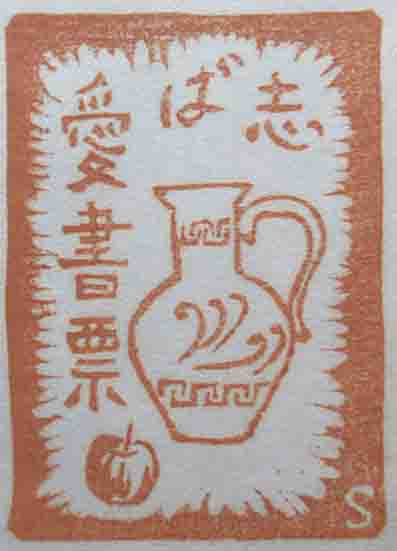 志ば
愛書票
S